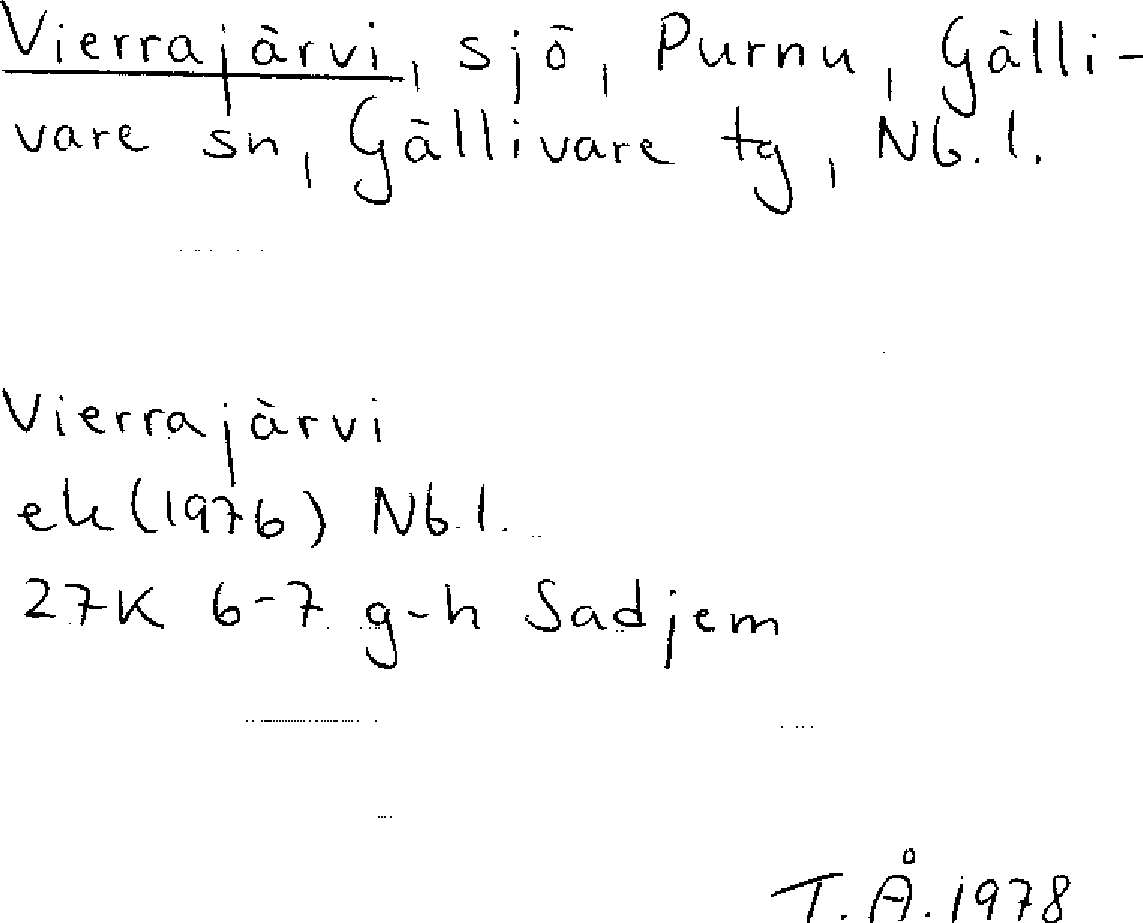 Vierrajärvi, sjö, Purnu, Gälli-
vare sn, Gällivare tg, Nb.l.
Vierrajärvi
ek (1976) Nb.l.
27K 6-7 g-h Sadjem
T.Å. 1978